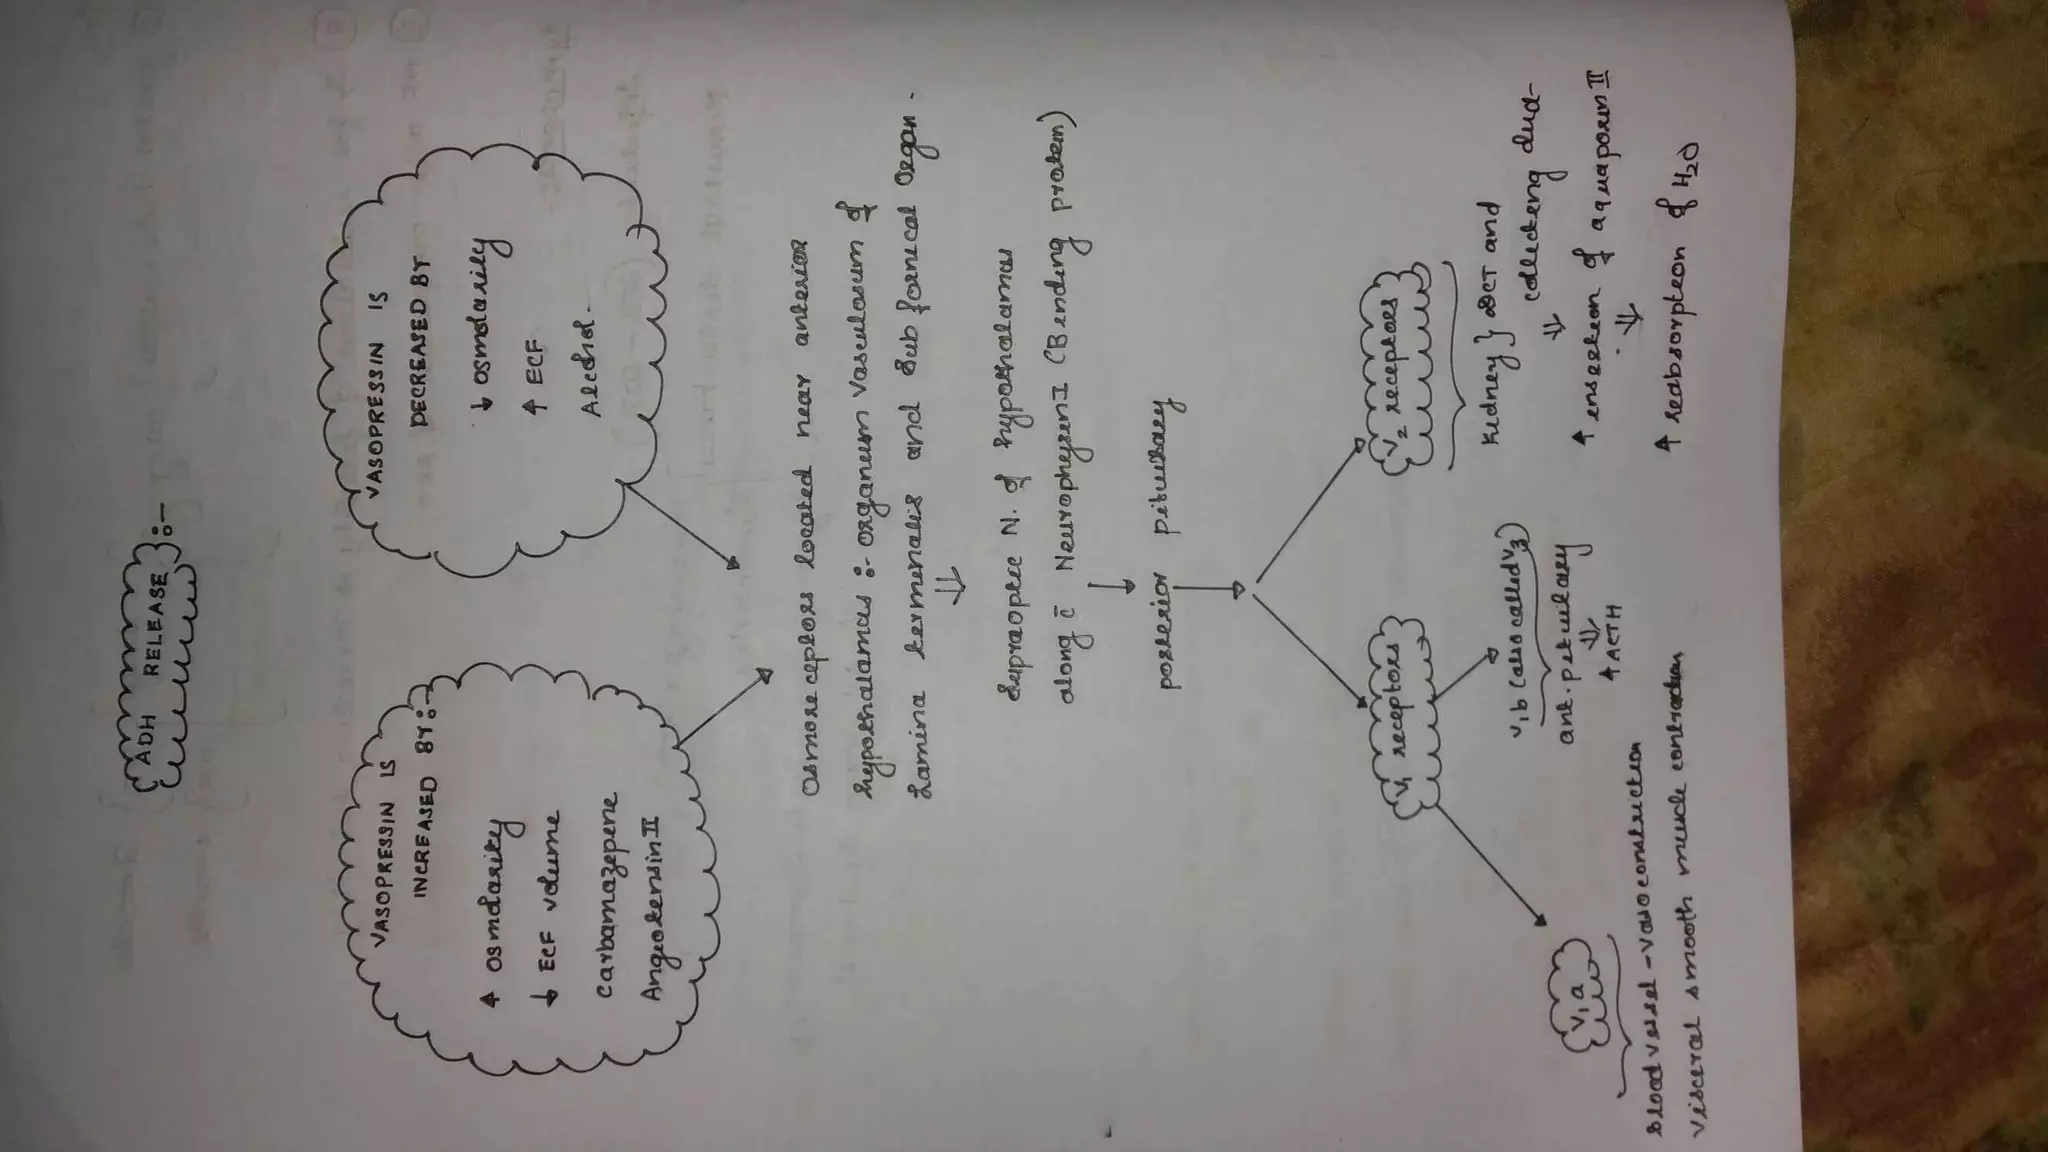 ADH RELEASE :-
VASOPRESSIN IS
INCREASED BY :-
↑ Osmolarity
↓ ECF volume
Carbamazepene
Angiotensin II
VASOPRESSIN IS
DECREASED BY
↓ Osmolarity
↑ ECF
Alcohol.
Osmoreceptors located near anterior
hypothalamus :- organum Vasculosum of
Lamina terminalis and Sub fornical organ.
⇓
Supraoptic N. of hypothalamus
along c̄ Neurophysin I (Binding protein)
↓
posterior pituitary
V₁ receptors
V₁a
Blood vessel - vasoconstriction
Visceral smooth muscle contraction
V₁b (also called V₃)
ant. pituitary
⇓
↑ ACTH
V₂ receptors
Kidney } DCT and
collecting duct
⇓
↑ insertion of aquaporin II
⇓
↑ reabsorption of H₂O